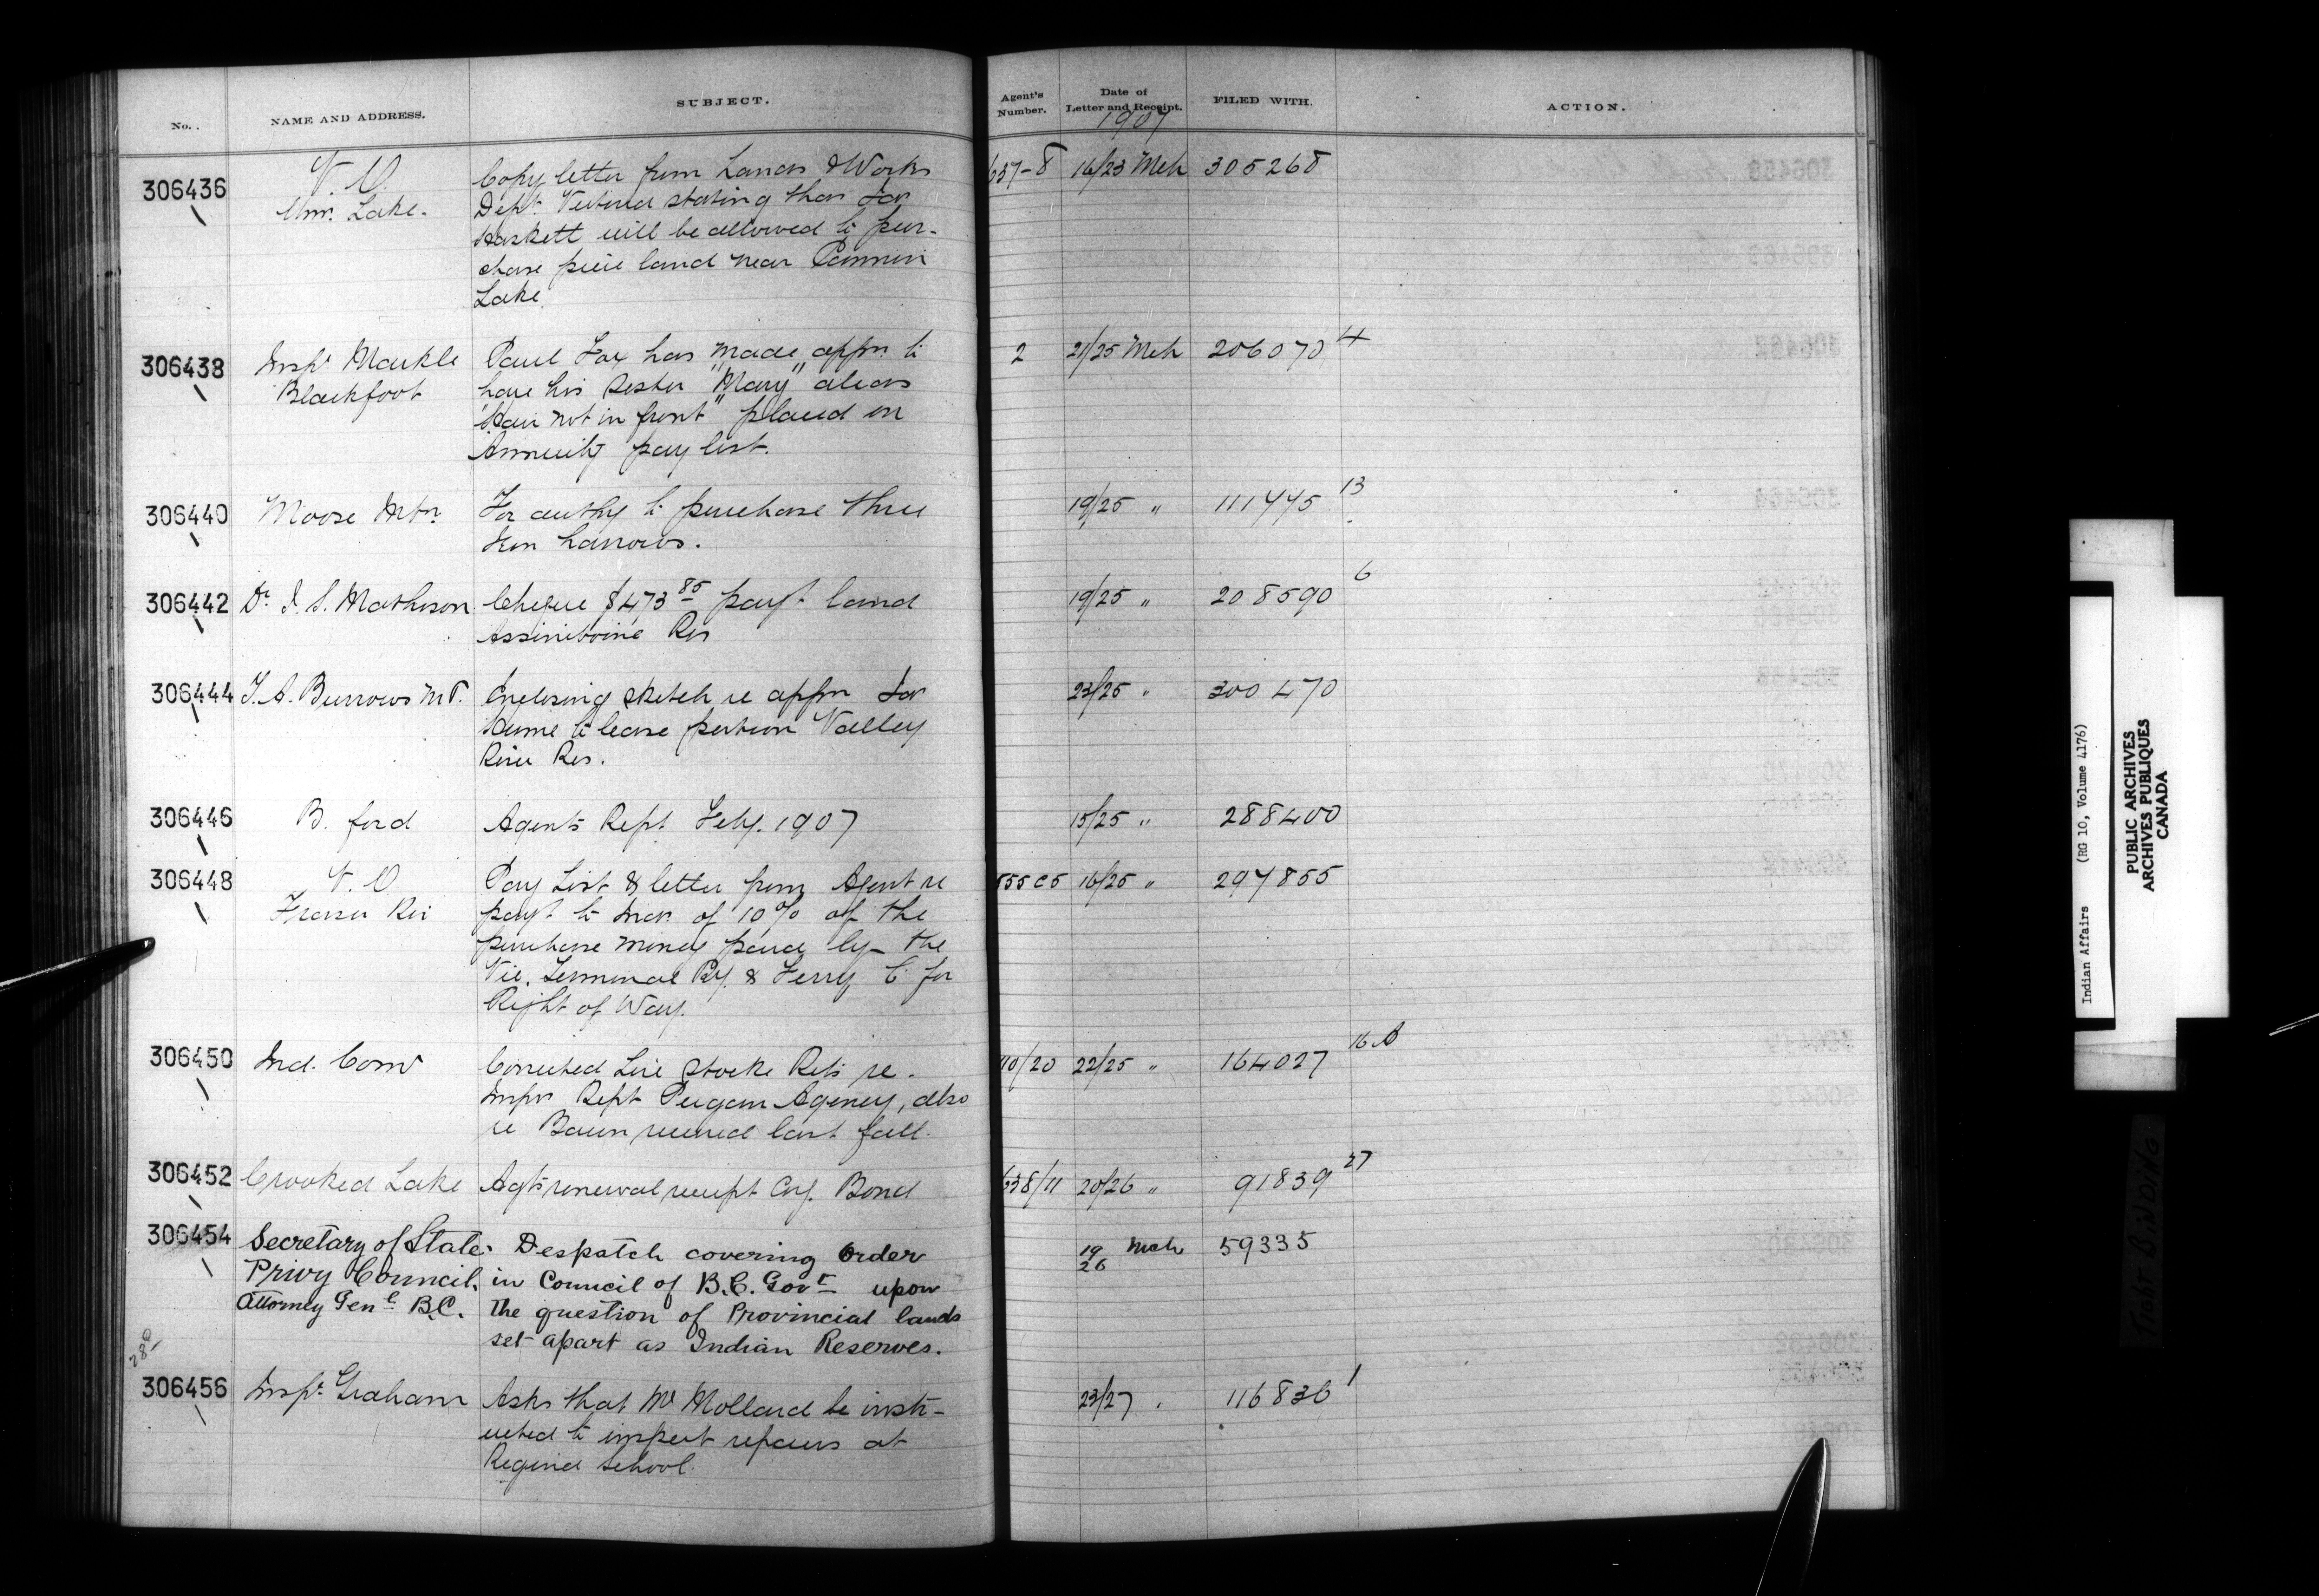 No.. NAME AND ADDRESS. SUBJECT. Agent's Number. Date of Letter and Receipt. FILED WITH. ACTION.
1907
306436 V. O. Copy letter from Lands & Works 16/23 Mch 305268
Wms. Lake. Dept. Victoria stating that
Haskett will be allowed to pur-
chase piece land near
Lake.
306438 Inspr Markle Paul Fox has made appn. to 2 21/25 Mch 206070 4
Blackfoot have his sister "Mary" alias
"Hair not in front" placed on
Annuity pay list.
306440 Moose Mtn. For authy to purchase three 19/25 " 111445 13
Iron harrows.
306442 Dr. I. S. Matheson Cheque $473 85 payt. land 19/25 " 208590 6
Assiniboine Res
306444 T. A. Burrows M.P. Enclosing sketch re appn 23/25 " 300470
Hume to lease portion Valley
River Res.
306446 B. ford Agents Rept. Feby. 1907 15/25 " 288400
306448 V. O. Pay List & letter from Agent re 16/25 " 297855
Fraser Riv payt to Inds. of 10% of the
purchase money paid by the
Vic. Terminal Ry. & Ferry Co. for
Right of Way.
306450 Ind. Comr Corrected Live Stock Rets re. 22/25 " 164027 16 A
Inspr Rept Peigan Agency, also
re Bacon received last fall.
306452 Crooked Lake Agts renewal receipt Bond 638/11 20/26 " 91839 27
306454 Secretary of State. Despatch covering Order 19/26 Mch 59335
Privy Council. in Council of B.C. Govt upon
Attorney Genl. B.C. the question of Provincial lands
set apart as Indian Reserves.
306456 Inspr. Graham Asks that Mr Mollard be instr- 23/27 116836 1
ucted to inspect repairs at
Regina school.
Indian Affairs (RG 10, Volume 4176)
PUBLIC ARCHIVES
ARCHIVES PUBLIQUES
CANADA
TIGHT BINDING